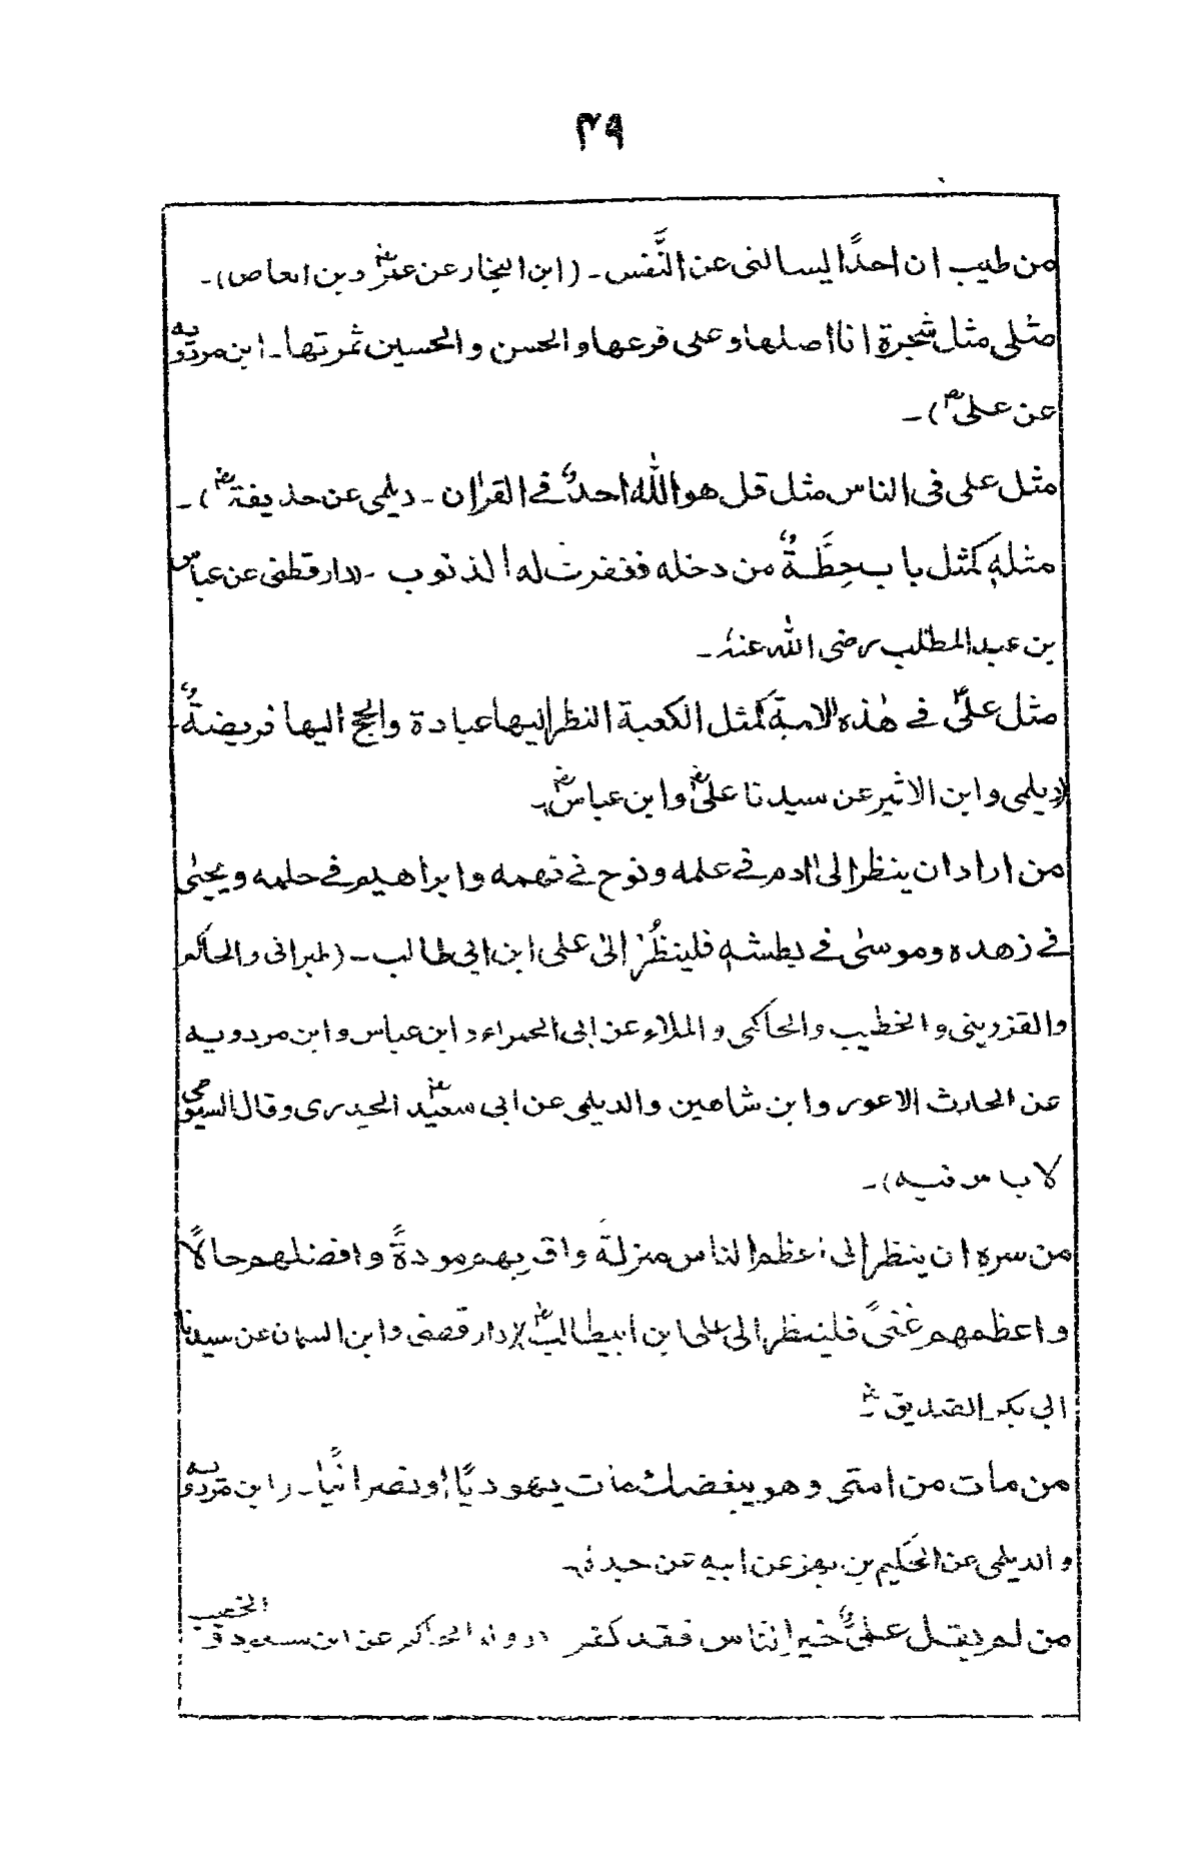 ٣٩
من طيب ان احدًا ليسا لنى عن النَّفس ـ (ابن النجار عن عمرؓ د بن العاص) ـ
مثلى مثل شجرة انا اصلها و على فرعها و الحسن و الحسين ثمرتها ـ ابن مردويه
عن على ؓ) ـ
مثل على فى الناس مثل قل هو اللّٰه احدٌ فے القراٰن ـ ديلمى عن حذيفة ؓ) ـ
مثلهٖ كمثل باب حِطَّةٌ من دخله فغفرت له الذنوب ـ (دار قطنى عن عباس
بن عبد المطلب رضى اللّٰه عنهٗ ـ
مثل علىٌّ فے هٰذه الامة كمثل الكعبة النظر اليها عبادة والحج اليها فريضةٌ ـ
(ديلمى و ابن الاثير عن سيدنا علىؓ و ابن عباسؓ ـ
من اراد ان ينظر الى اٰدم فے علمه و نوح فے فهمه و ابراهيم فے حلمه و يحيىٰ
فے زهده و موسىٰ فے بطشهٖ فلينظُرْ الىٰ على ابن ابى طالب ـ (طبرانى و الحاكم
و القزوينى و الخطيب و الحاكمى و الملاء عن ابى الحمراء و ابن عباس و ابن مردويه
عن الحارث الاعور و ابن شاهين و الديلمى عن ابى سعيدؓ الخدرى و قال السيوطى
لا باس فيه) ـ
من سره ان ينظر الى اعظم الناس منزلة و اقربهم مودةً و افضلهم حالًا
و اعظمهم غنىً فلينظر الى على ابن ابيطالبؓ (دار قطنى و ابن السمان عن سيدنا
ابى بكر الصديق ؓ ـ
من مات من امتى و هو يبغضك مات يهوديًّا او نصرانيًّا ـ (ابن مردويه
و الديلمى عن الحكيم بن بهز عن ابيه عن جده) ـ
من لم يقل علىٌّ خير الناس فقد كفر (رواه الحاكم عن ابن مسعود و الخطيب